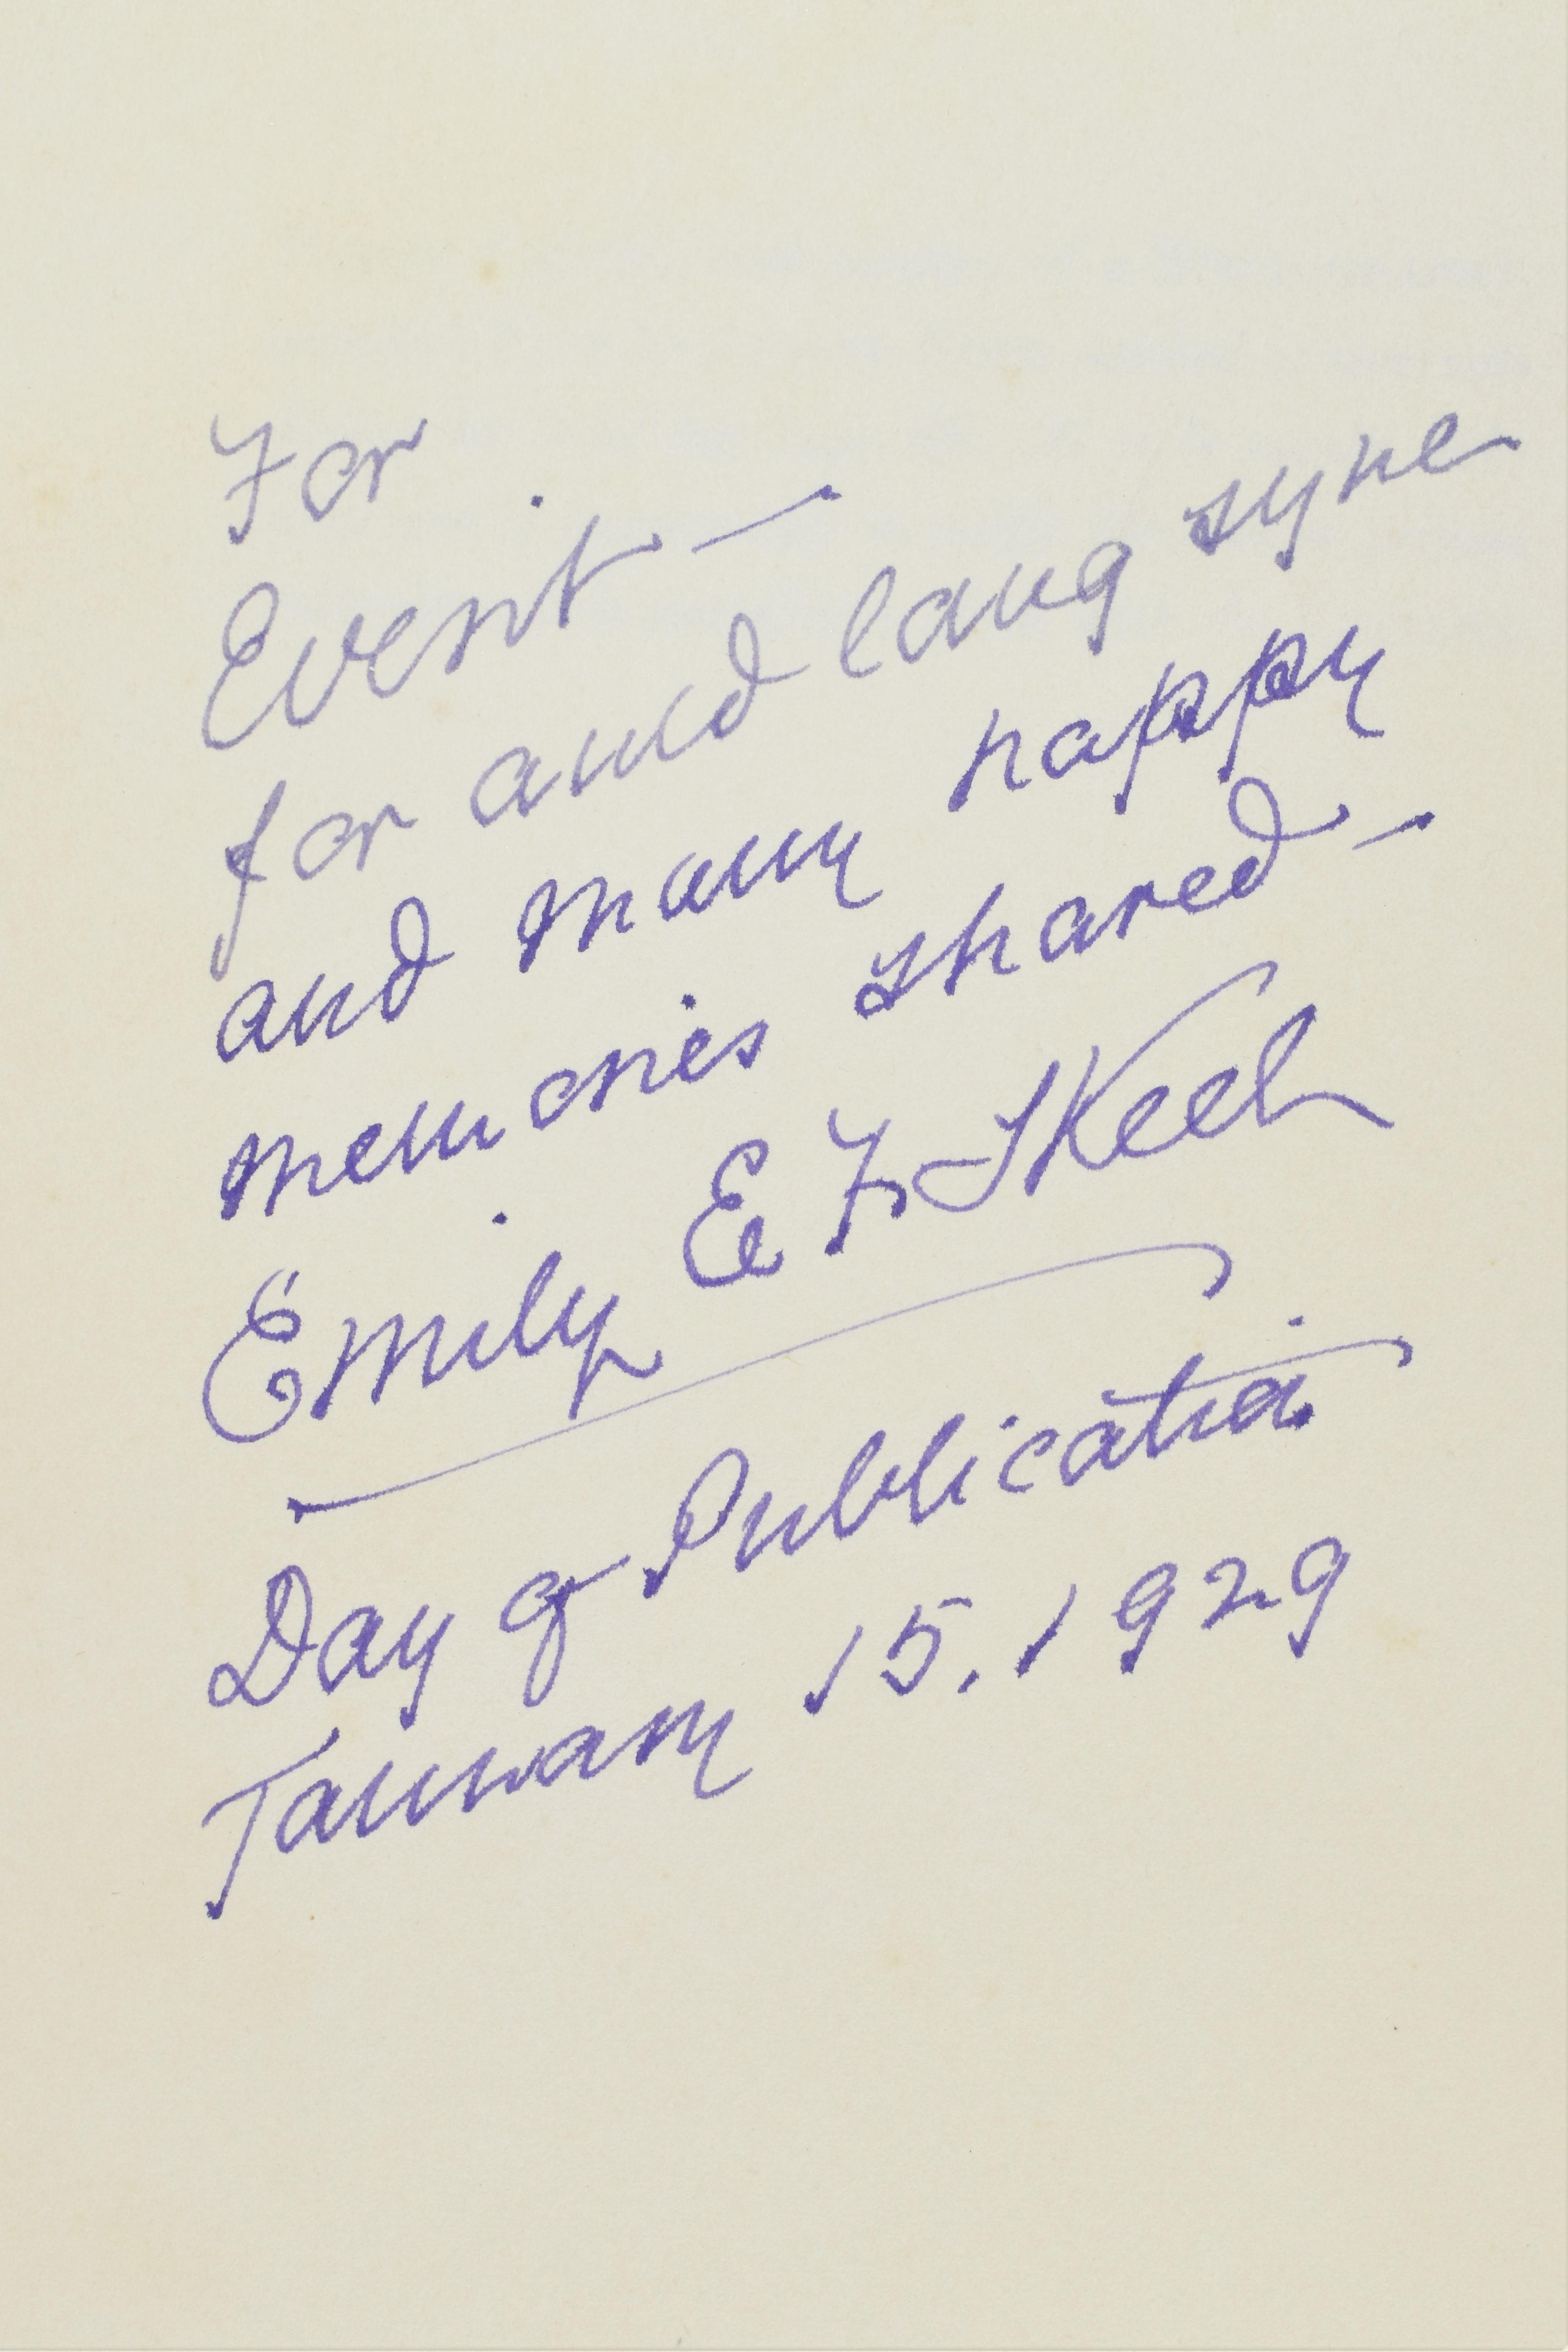 For
Everit —
for auld lang syne
and many happy
memories shared —
Emily E. F. Skeel
Day of Publication
January 15. 1929